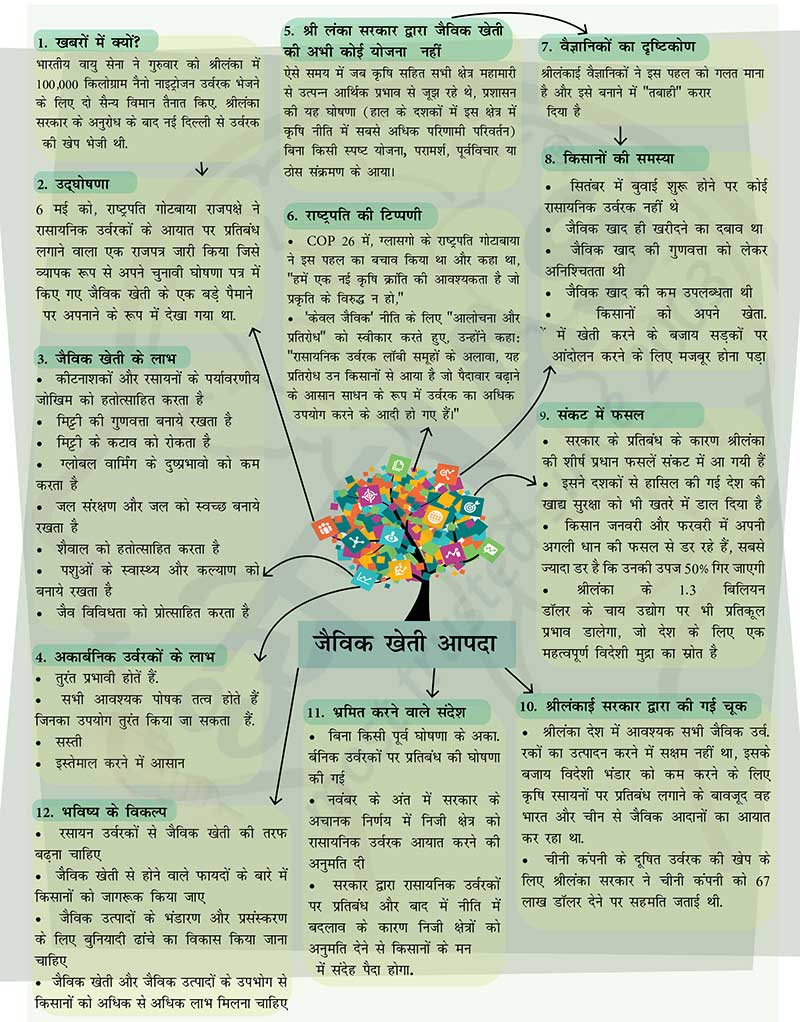 1. खबरों में क्यों?
भारतीय वायु सेना ने गुरुवार को श्रीलंका में
100,000 किलोग्राम नैनो नाइट्रोजन उर्वरक भेजने
के लिए दो सैन्य विमान तैनात किए. श्रीलंका
सरकार के अनुरोध के बाद नई दिल्ली से उर्वरक
की खेप भेजी थी.
2. उद्घोषणा
6 मई को, राष्ट्रपति गोटबाया राजपक्षे ने
रासायनिक उर्वरकों के आयात पर प्रतिबंध
लगाने वाला एक राजपत्र जारी किया जिसे
व्यापक रूप से अपने चुनावी घोषणा पत्र में
किए गए जैविक खेती के एक बड़े पैमाने
पर अपनाने के रूप में देखा गया था.
3. जैविक खेती के लाभ
• कीटनाशकों और रसायनों के पर्यावरणीय
जोखिम को हतोत्साहित करता है
• मिट्टी की गुणवत्ता बनाये रखता है
• मिट्टी के कटाव को रोकता है
• ग्लोबल वार्मिंग के दुष्प्रभावो को कम
करता है
• जल संरक्षण और जल को स्वच्छ बनाये
रखता है
• शैवाल को हतोत्साहित करता है
• पशुओं के स्वास्थ्य और कल्याण को
बनाये रखता है
• जैव विविधता को प्रोत्साहित करता है
4. अकार्बनिक उर्वरकों के लाभ
• तुरंत प्रभावी होतें हैं.
• सभी आवश्यक पोषक तत्व होते हैं
जिनका उपयोग तुरंत किया जा सकता हैं.
• सस्ती
• इस्तेमाल करने में आसान
5. श्री लंका सरकार द्वारा जैविक खेती
की अभी कोई योजना नहीं
ऐसे समय में जब कृषि सहित सभी क्षेत्र महामारी
से उत्पन्न आर्थिक प्रभाव से जूझ रहे थे, प्रशासन
की यह घोषणा (हाल के दशकों में इस क्षेत्र में
कृषि नीति में सबसे अधिक परिणामी परिवर्तन)
बिना किसी स्पष्ट योजना, परामर्श, पूर्वविचार या
ठोस संक्रमण के आया।
6. राष्ट्रपति की टिप्पणी
• COP 26 में, ग्लासगो के राष्ट्रपति गोटाबाया
ने इस पहल का बचाव किया था और कहा था,
"हमें एक नई कृषि क्रांति की आवश्यकता है जो
प्रकृति के विरुद्ध न हो,"
• 'केवल जैविक' नीति के लिए "आलोचना और
प्रतिरोध" को स्वीकार करते हुए, उन्होंने कहा:
"रासायनिक उर्वरक लॉबी समूहों के अलावा, यह
प्रतिरोध उन किसानों से आया है जो पैदावार बढ़ाने
के आसान साधन के रूप में उर्वरक का अधिक
उपयोग करने के आदी हो गए हैं।"
7. वैज्ञानिकों का दृष्टिकोण
श्रीलंकाई वैज्ञानिकों ने इस पहल को गलत माना
है और इसे बनाने में "तबाही" करार
दिया है
8. किसानों की समस्या
• सितंबर में बुवाई शुरू होने पर कोई
रासायनिक उर्वरक नहीं थे
• जैविक खाद ही खरीदने का दबाव था
• जैविक खाद की गुणवत्ता को लेकर
अनिश्चितता थी
• जैविक खाद की कम उपलब्धता थी
• किसानों को अपने खेता.
ें में खेती करने के बजाय सड़कों पर
आंदोलन करने के लिए मजबूर होना पड़ा
9. संकट में फसल
• सरकार के प्रतिबंध के कारण श्रीलंका
की शीर्ष प्रधान फसलें संकट में आ गयी हैं
• इसने दशकों से हासिल की गई देश की
खाद्य सुरक्षा को भी खतरे में डाल दिया है
• किसान जनवरी और फरवरी में अपनी
अगली धान की फसल से डर रहे हैं, सबसे
ज्यादा डर है कि उनकी उपज 50% गिर जाएगी
• श्रीलंका के 1.3 बिलियन
डॉलर के चाय उद्योग पर भी प्रतिकूल
प्रभाव डालेगा, जो देश के लिए एक
महत्वपूर्ण विदेशी मुद्रा का स्रोत है
जैविक खेती आपदा
10. श्रीलंकाई सरकार द्वारा की गई चूक
• श्रीलंका देश में आवश्यक सभी जैविक उर्व.
रकों का उत्पादन करने में सक्षम नहीं था, इसके
बजाय विदेशी भंडार को कम करने के लिए
कृषि रसायनों पर प्रतिबंध लगाने के बावजूद वह
भारत और चीन से जैविक आदानों का आयात
कर रहा था.
• चीनी कंपनी के दूषित उर्वरक की खेप के
लिए श्रीलंका सरकार ने चीनी कंपनी को 67
लाख डॉलर देने पर सहमति जताई थी.
11. भ्रमित करने वाले संदेश
• बिना किसी पूर्व घोषणा के अका.
र्बनिक उर्वरकों पर प्रतिबंध की घोषणा
की गई
• नवंबर के अंत में सरकार के
अचानक निर्णय में निजी क्षेत्र को
रासायनिक उर्वरक आयात करने की
अनुमति दी
• सरकार द्वारा रासायनिक उर्वरकों
पर प्रतिबंध और बाद में नीति में
बदलाव के कारण निजी क्षेत्रों को
अनुमति देने से किसानों के मन
में संदेह पैदा होगा.
12. भविष्य के विकल्प
• रसायन उर्वरकों से जैविक खेती की तरफ
बढ़ना चाहिए
• जैविक खेती से होने वाले फायदों के बारे में
किसानों को जागरूक किया जाए
• जैविक उत्पादों के भंडारण और प्रसंस्करण
के लिए बुनियादी ढांचे का विकास किया जाना
चाहिए
• जैविक खेती और जैविक उत्पादों के उपभोग से
किसानों को अधिक से अधिक लाभ मिलना चाहिए